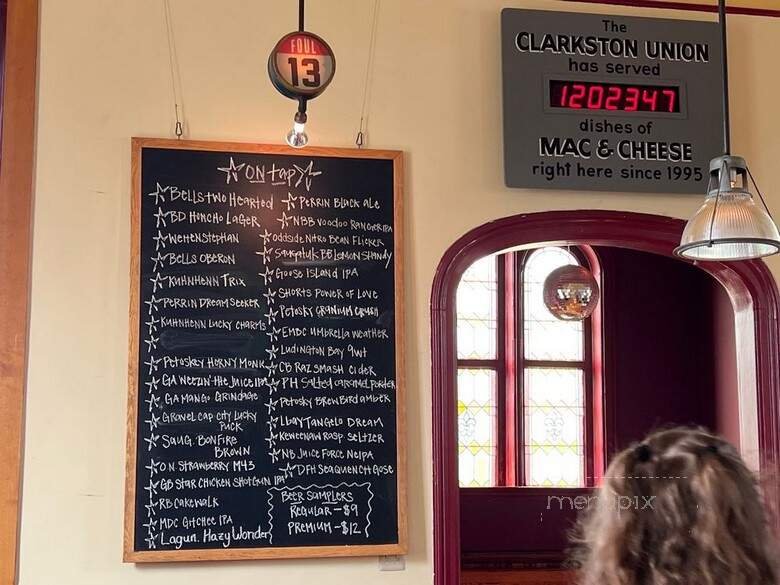 FOUL
13
The
CLARKSTON UNION
has served
1202347
dishes of
MAC & CHEESE
right here since 1995
ON tap
Bells two Hearted
BD Honcho Lager
Weihenstephan
Bells Oberon
Kuhnhenn Trix
Perrin Dream Seeker
Kuhnhenn Lucky Charms
Petoskey Horny Monk
GA Weezin the Juice IPA
GA Mango Grindage
Gravel cap city Lucky
Puck
Saug. Bonfire
Brown
ON Strawberry M43
GB Star Chicken Shotgun IPA
RB Cakewalk
MDC Gitchee IPA
Lagun. Hazy Wonder
Perrin Black ale
NBB Voodoo Ranger IPA
Oddside Nitro Bean Flicker
Saugatuk BB Lemon Shandy
Goose Island IPA
Shorts Power of Love
Petosky Granium Crush
EMDC Umbrella Weather
Ludington Bay 9wt
CB Raz Smash Cider
PH Salted Caramel Porter
Petosky Brew Bird amber
Lbay Tangelo Dream
Keweenaw Rasp Seltzer
NB Juice Force NeIPA
DFH Seaquench Gose
Beer Samplers
Regular - $9
Premium - $12
menupix